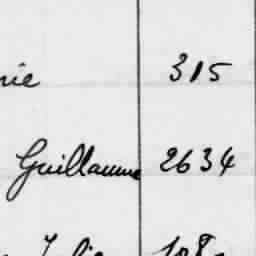 nie 315
Guillaume 2634
Julie 108